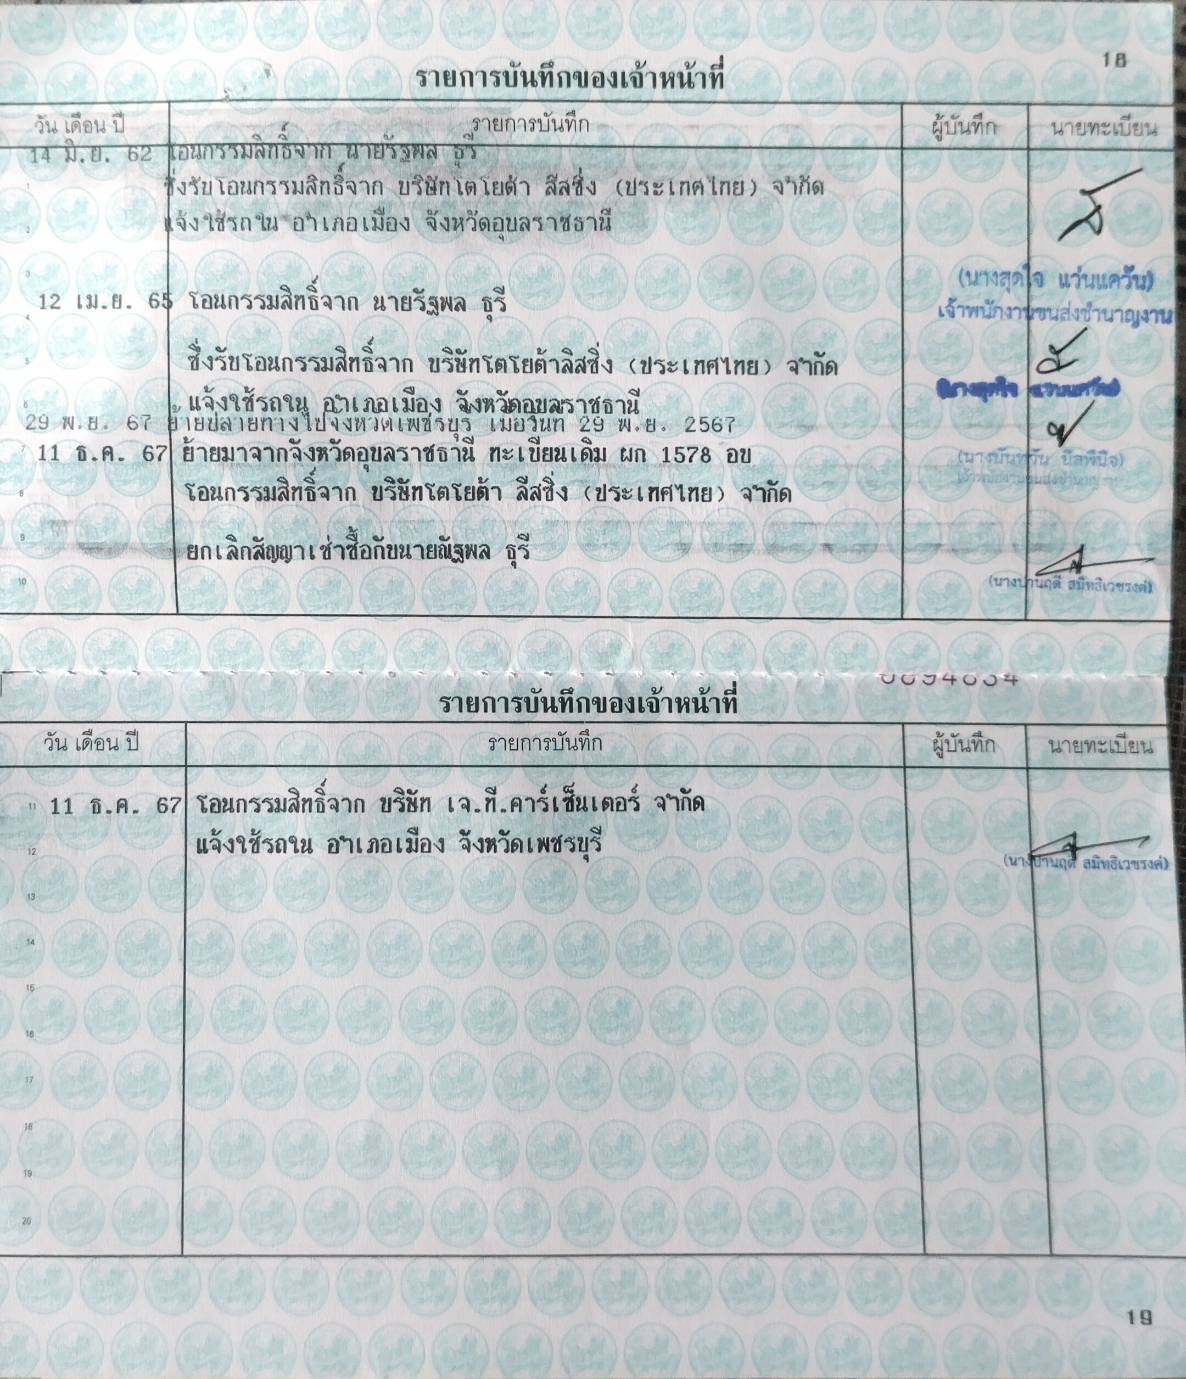 18
รายการบันทึกของเจ้าหน้าที่
วัน เดือน ปี รายการบันทึก ผู้บันทึก นายทะเบียน
14 มิ.ย. 62 โอนกรรมสิทธิ์จาก นายรัฐพล ธุรี
ซึ่งรับโอนกรรมสิทธิ์จาก บริษัทโตโยต้า ลีสซิ่ง (ประเทศไทย) จำกัด
แจ้งใช้รถใน อำเภอเมือง จังหวัดอุบลราชธานี
(นางสุดใจ แว่นแคว้น)
12 เม.ย. 65 โอนกรรมสิทธิ์จาก นายรัฐพล ธุรี
เจ้าพนักงานขนส่งชำนาญงาน
ซึ่งรับโอนกรรมสิทธิ์จาก บริษัทโตโยต้าลิสซิ่ง (ประเทศไทย) จำกัด
(นางสุดใจ แว่นแคว้น)
แจ้งใช้รถใน อำเภอเมือง จังหวัดอุบลราชธานี
29 พ.ย. 67 ย้ายปลายทางไปจังหวัดเพชรบุรี เมื่อวันที่ 29 พ.ย. 2567
11 ธ.ค. 67 ย้ายมาจากจังหวัดอุบลราชธานี ทะเบียนเดิม ผก 1578 อบ
โอนกรรมสิทธิ์จาก บริษัทโตโยต้า ลีสซิ่ง (ประเทศไทย) จำกัด
ยกเลิกสัญญาเช่าซื้อกับนายณัฐพล ธุรี
(นางปานฤดี สมิทธิเวชรงค์)
1
2
3
4
5
6
7
8
9
10
0894634
รายการบันทึกของเจ้าหน้าที่
วัน เดือน ปี รายการบันทึก ผู้บันทึก นายทะเบียน
11 11 ธ.ค. 67 โอนกรรมสิทธิ์จาก บริษัท เจ.ที.คาร์เซ็นเตอร์ จำกัด
12 แจ้งใช้รถใน อำเภอเมือง จังหวัดเพชรบุรี
(นางปานฤดี สมิทธิเวชรงค์)
13
14
15
16
17
18
19
20
19